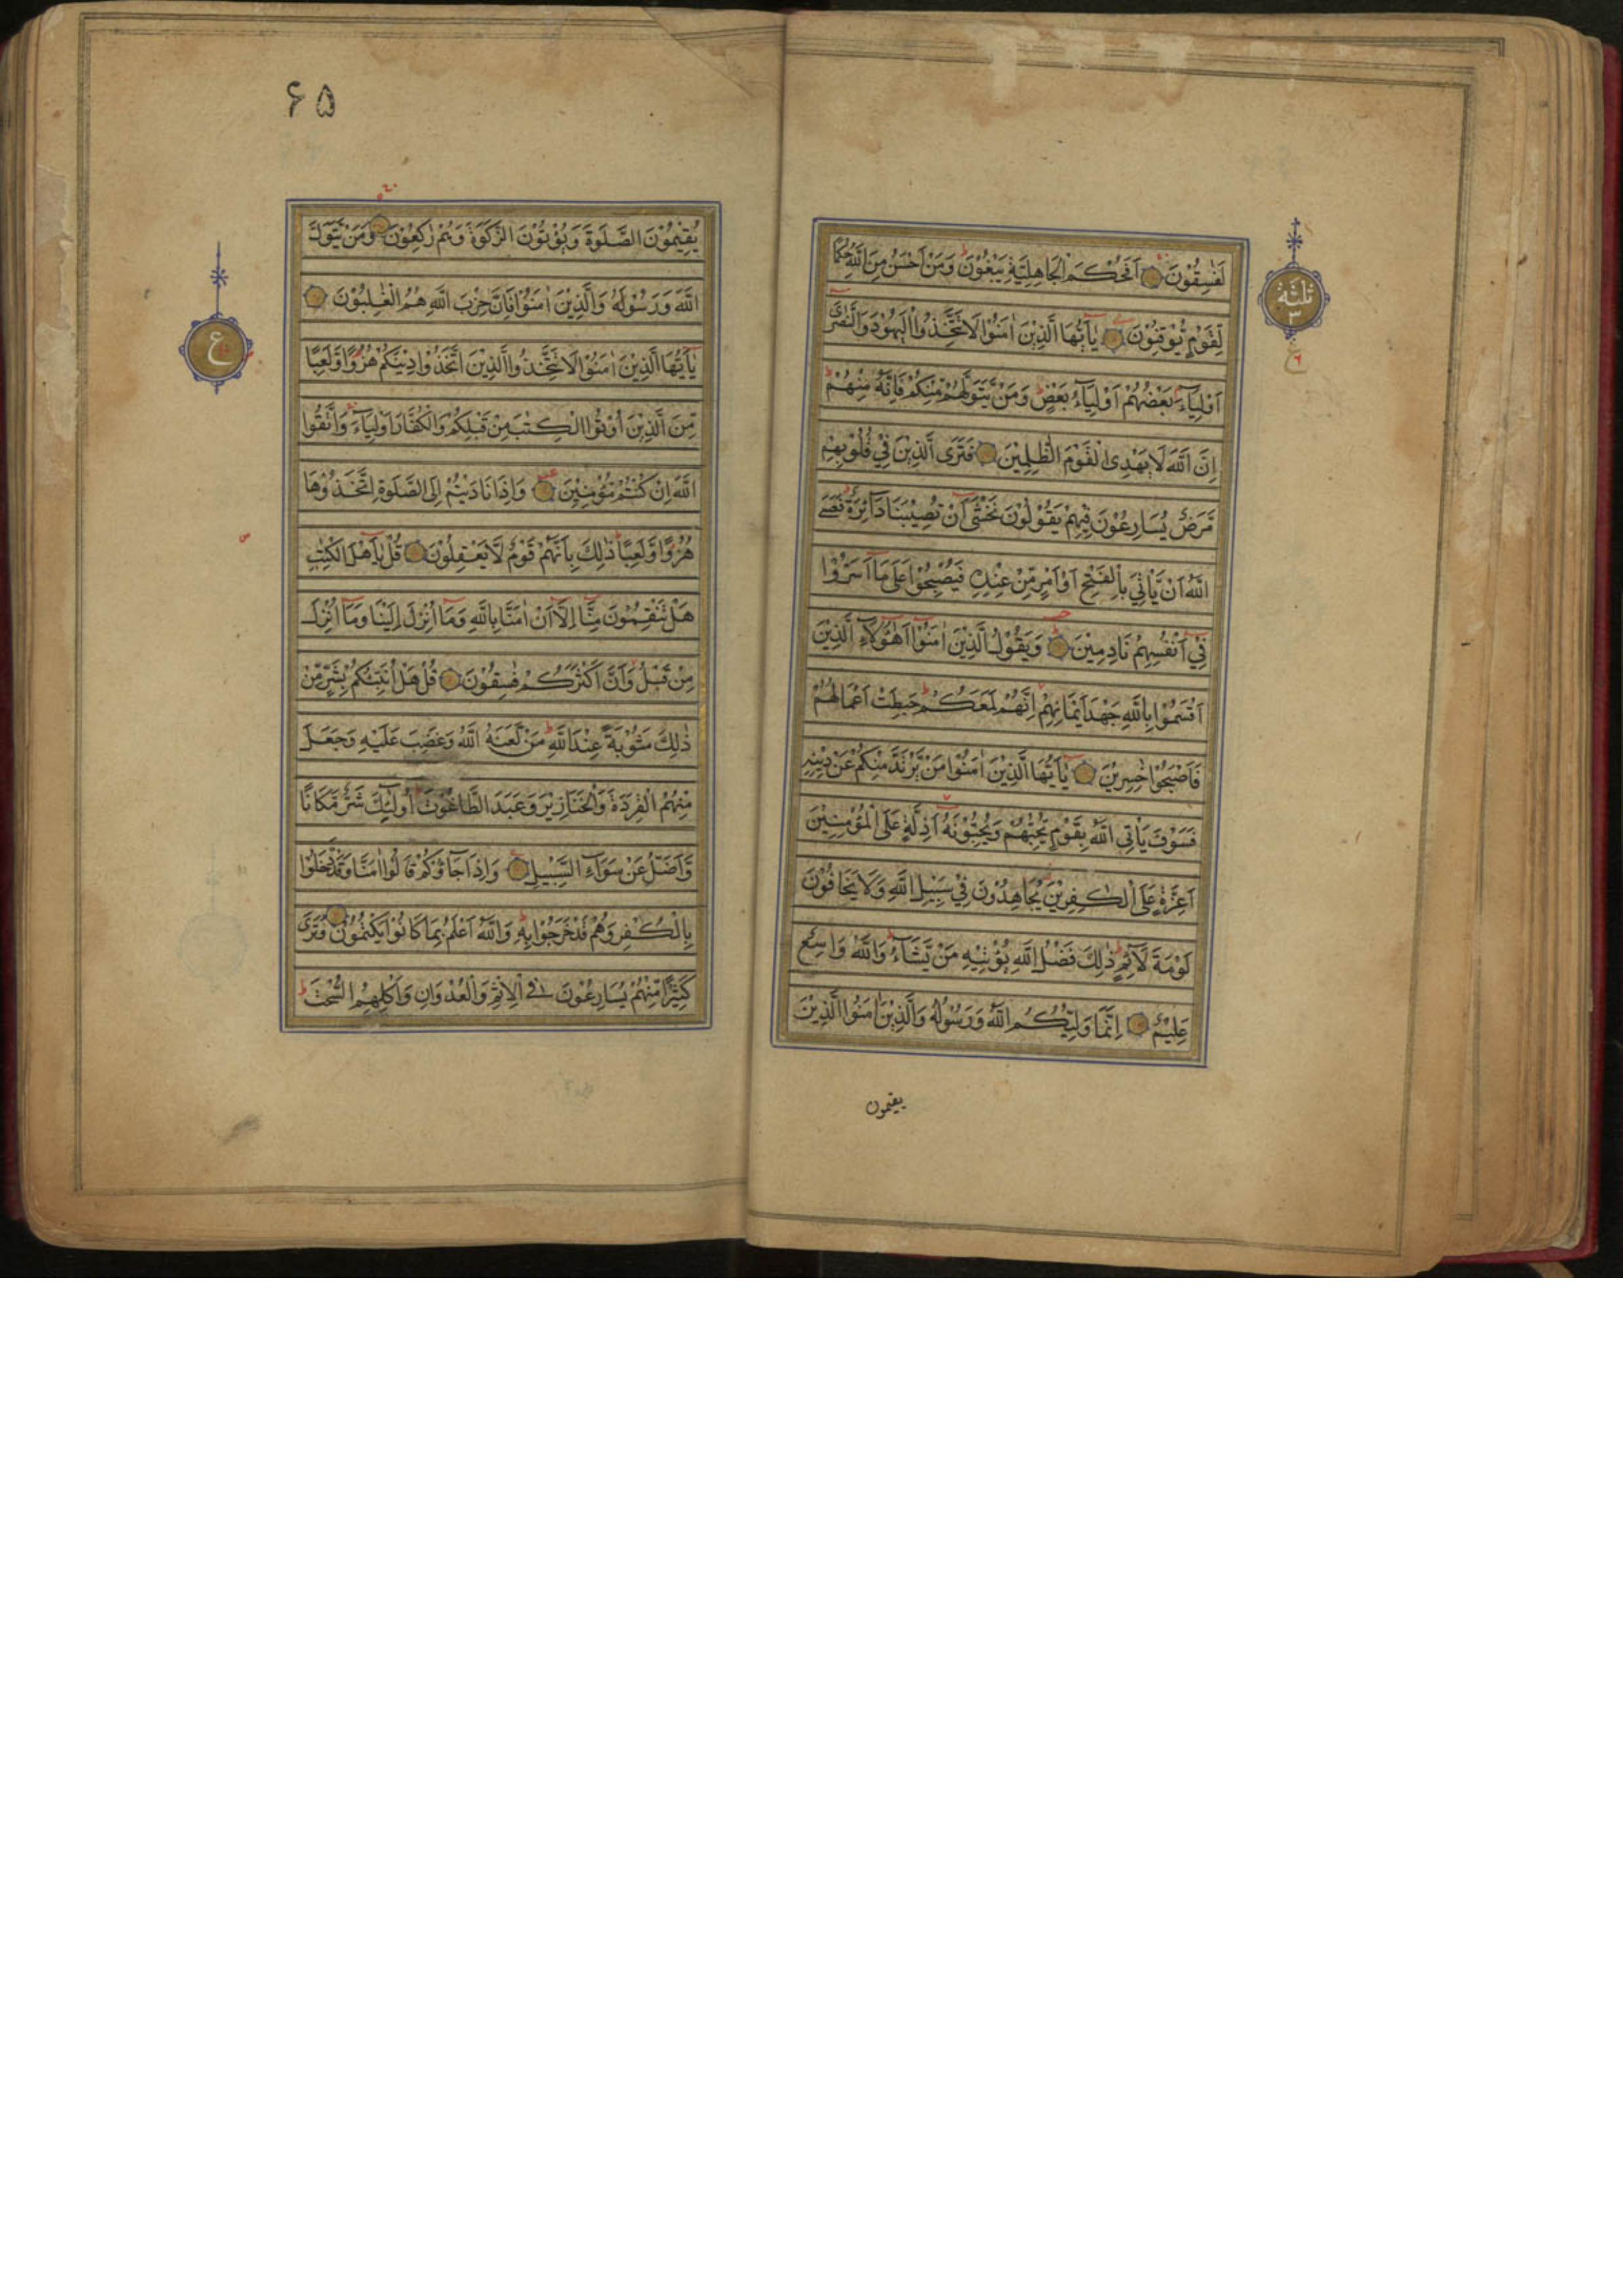 لَفٰسِقُوْنَ اَفَحُكْمَ الْجَاهِلِيَّةِ يَبْغُوْنَ وَمَنْ اَحْسَنُ مِنَ اللّٰهِ حُكْمًا
لِّقَوْمٍ يُّوْقِنُوْنَ يٰٓاَيُّهَا الَّذِيْنَ اٰمَنُوْا لَا تَتَّخِذُوا الْيَهُوْدَ وَالنَّصٰرٰٓى
اَوْلِيَآءَ بَعْضُهُمْ اَوْلِيَآءُ بَعْضٍ وَمَنْ يَّتَوَلَّهُمْ مِّنْكُمْ فَاِنَّهُ مِنْهُمْ
اِنَّ اللّٰهَ لَا يَهْدِى الْقَوْمَ الظّٰلِمِيْنَ فَتَرَى الَّذِيْنَ فِيْ قُلُوْبِهِمْ
مَّرَضٌ يُّسَارِعُوْنَ فِيْهِمْ يَقُوْلُوْنَ نَخْشٰٓى اَنْ تُصِيْبَنَا دَآئِرَةٌ فَعَسَى
اللّٰهُ اَنْ يَّاْتِيَ بِالْفَتْحِ اَوْ اَمْرٍ مِّنْ عِنْدِهٖ فَيُصْبِحُوْا عَلٰى مَآ اَسَرُّوْا
فِيْٓ اَنْفُسِهِمْ نَادِمِيْنَ وَيَقُوْلُ الَّذِيْنَ اٰمَنُوْٓا اَهٰٓؤُلَآءِ الَّذِيْنَ
اَقْسَمُوْا بِاللّٰهِ جَهْدَ اَيْمَانِهِمْ اِنَّهُمْ لَمَعَكُمْ حَبِطَتْ اَعْمَالُهُمْ
فَاَصْبَحُوْا خٰسِرِيْنَ يٰٓاَيُّهَا الَّذِيْنَ اٰمَنُوْا مَنْ يَّرْتَدَّ مِنْكُمْ عَنْ دِيْنِهٖ
فَسَوْفَ يَاْتِى اللّٰهُ بِقَوْمٍ يُّحِبُّهُمْ وَيُحِبُّوْنَهُ اَذِلَّةٍ عَلَى الْمُؤْمِنِيْنَ
اَعِزَّةٍ عَلَى الْكٰفِرِيْنَ يُجَاهِدُوْنَ فِيْ سَبِيْلِ اللّٰهِ وَلَا يَخَافُوْنَ
لَوْمَةَ لَآئِمٍ ذٰلِكَ فَضْلُ اللّٰهِ يُؤْتِيْهِ مَنْ يَّشَآءُ وَاللّٰهُ وَاسِعٌ
عَلِيْمٌ اِنَّمَا وَلِيُّكُمُ اللّٰهُ وَرَسُوْلُهُ وَالَّذِيْنَ اٰمَنُوا الَّذِيْنَ
يقيمون
ثلثة
٣
ع
٦
٦٥
يُقِيْمُوْنَ الصَّلٰوةَ وَيُؤْتُوْنَ الزَّكٰوةَ وَهُمْ رٰكِعُوْنَ وَمَنْ يَّتَوَلَّ
اللّٰهَ وَرَسُوْلَهُ وَالَّذِيْنَ اٰمَنُوْا فَاِنَّ حِزْبَ اللّٰهِ هُمُ الْغٰلِبُوْنَ
يٰٓاَيُّهَا الَّذِيْنَ اٰمَنُوْا لَا تَتَّخِذُوا الَّذِيْنَ اتَّخَذُوْا دِيْنَكُمْ هُزُوًا وَّلَعِبًا
مِّنَ الَّذِيْنَ اُوْتُوا الْكِتٰبَ مِنْ قَبْلِكُمْ وَالْكُفَّارَ اَوْلِيَآءَ وَاتَّقُوا
اللّٰهَ اِنْ كُنْتُمْ مُّؤْمِنِيْنَ وَاِذَا نَادَيْتُمْ اِلَى الصَّلٰوةِ اتَّخَذُوْهَا
هُزُوًا وَّلَعِبًا ذٰلِكَ بِاَنَّهُمْ قَوْمٌ لَّا يَعْقِلُوْنَ قُلْ يٰٓاَهْلَ الْكِتٰبِ
هَلْ تَنْقِمُوْنَ مِنَّآ اِلَّآ اَنْ اٰمَنَّا بِاللّٰهِ وَمَآ اُنْزِلَ اِلَيْنَا وَمَآ اُنْزِلَ
مِنْ قَبْلُ وَاَنَّ اَكْثَرَكُمْ فٰسِقُوْنَ قُلْ هَلْ اُنَبِّئُكُمْ بِشَرٍّ مِّنْ
ذٰلِكَ مَثُوْبَةً عِنْدَ اللّٰهِ مَنْ لَّعَنَهُ اللّٰهُ وَغَضِبَ عَلَيْهِ وَجَعَلَ
مِنْهُمُ الْقِرَدَةَ وَالْخَنَازِيْرَ وَعَبَدَ الطَّاغُوْتَ اُولٰٓئِكَ شَرٌّ مَّكَانًا
وَّاَضَلُّ عَنْ سَوَآءِ السَّبِيْلِ وَاِذَا جَآؤُكُمْ قَالُوْٓا اٰمَنَّا وَقَدْ دَّخَلُوْا
بِالْكُفْرِ وَهُمْ قَدْ خَرَجُوْا بِهٖ وَاللّٰهُ اَعْلَمُ بِمَا كَانُوْا يَكْتُمُوْنَ وَتَرٰى
كَثِيْرًا مِّنْهُمْ يُسَارِعُوْنَ فِى الْاِثْمِ وَالْعُدْوَانِ وَاَكْلِهِمُ السُّحْتَ
ع